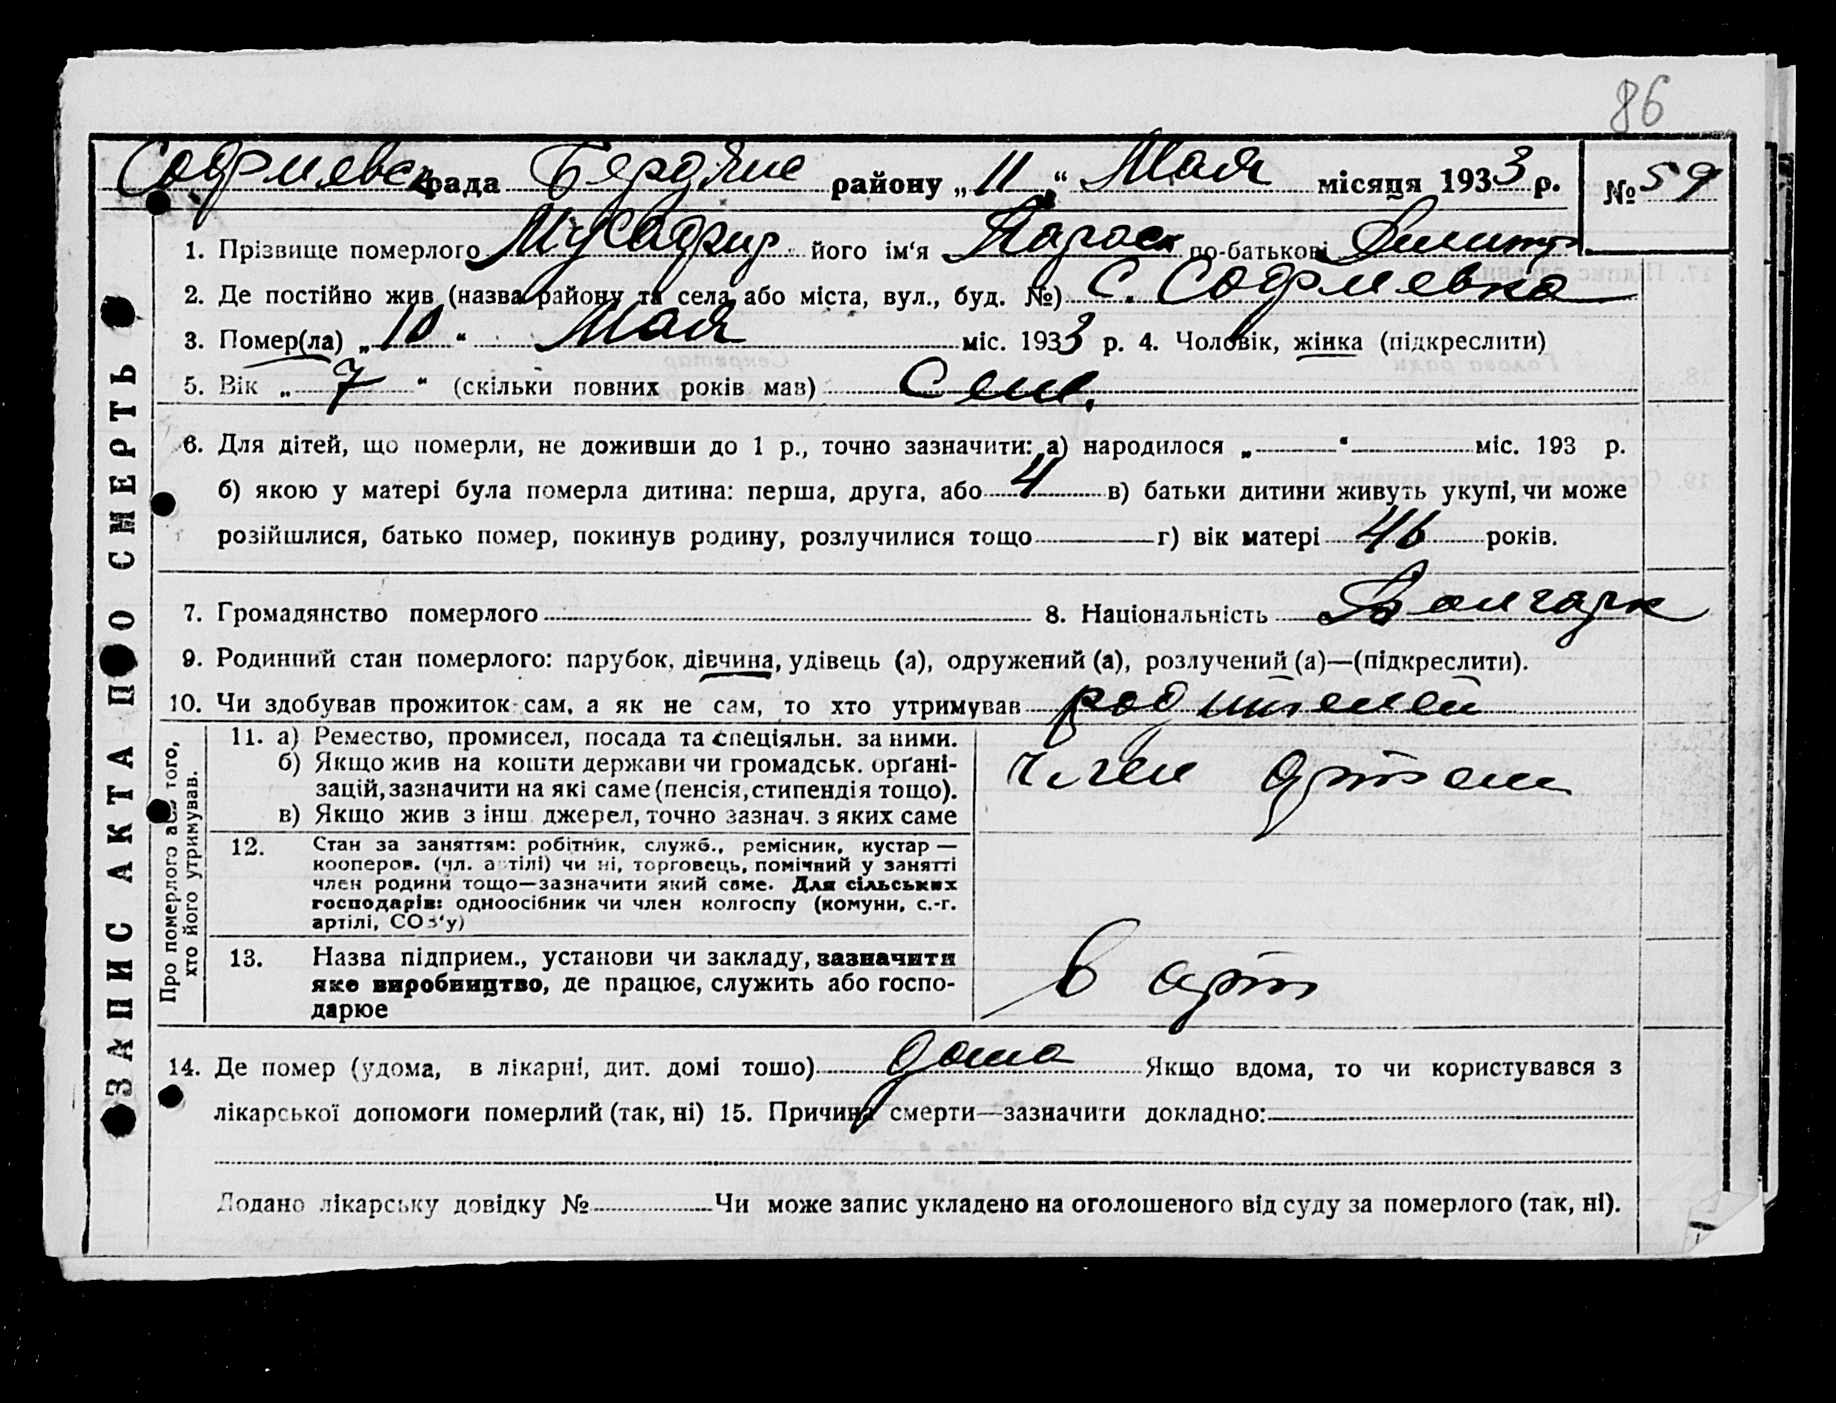 86
Софиевск рада Бердянс району „11“ Мая місяця 1933 р. № 59
1. Прізвище померлого Мусафир його ім‘я Параск по-батькові Димитр
2. Де постійно жив (назва району та села або міста, вул., буд. №) С. Софиевка
3. Помер(ла) „10“ Мая міс. 1933 р. 4. Чоловік, жінка (підкреслити)
5. Вік „7“ (скільки повних років мав) Сем.
6. Для дітей, що померли, не доживши до 1 р., точно зазначити: а) народилося „ “ міс. 193 р.
б) якою у матері була померла дитина: перша, друга, або 4 в) батьки дитини живуть укупі, чи може
розійшлися, батько помер, покинув родину, розлучилися тощо г) вік матері 46 років.
7. Громадянство померлого 8. Національність Болгарк
9. Родинний стан померлого: парубок, дівчина, удівець (а), одружений (а), розлучений (а)—(підкреслити).
10. Чи здобував прожиток сам, а як не сам, то хто утримував родителей
11. а) Ремество, промисел, посада та спеціяльн. за ними.
б) Якщо жив на кошти держави чи громадськ. орґані-
зацій, зазначити на які саме (пенсія, стипендія тощо).
в) Якщо жив з інш. джерел, точно зазнач. з яких саме
член артели
12. Стан за заняттям: робітник, служб., ремісник, кустар —
кооперов. (чл. артілі) чи ні, торговець, помічний у занятті
член родини тощо—зазначити який саме. Для сільських
господарів: одноосібник чи член колгоспу (комуни, с.-г.
артілі, СОЗ‘у)
13. Назва підприєм., установи чи закладу, зазначити
яке виробництво, де працює, служить або госпо-
дарює
в арт
14. Де помер (удома, в лікарні, дит. домі тощо) дома Якщо вдома, то чи користувався з
лікарської допомоги померлий (так, ні) 15. Причина смерти—зазначити докладно:
Додано лікарську довідку № Чи може запис укладено на оголошеного від суду за померлого (так, ні).
ЗАПИС АКТА ПРО СМЕРТЬ
Про померлого або того,
хто його утримував.